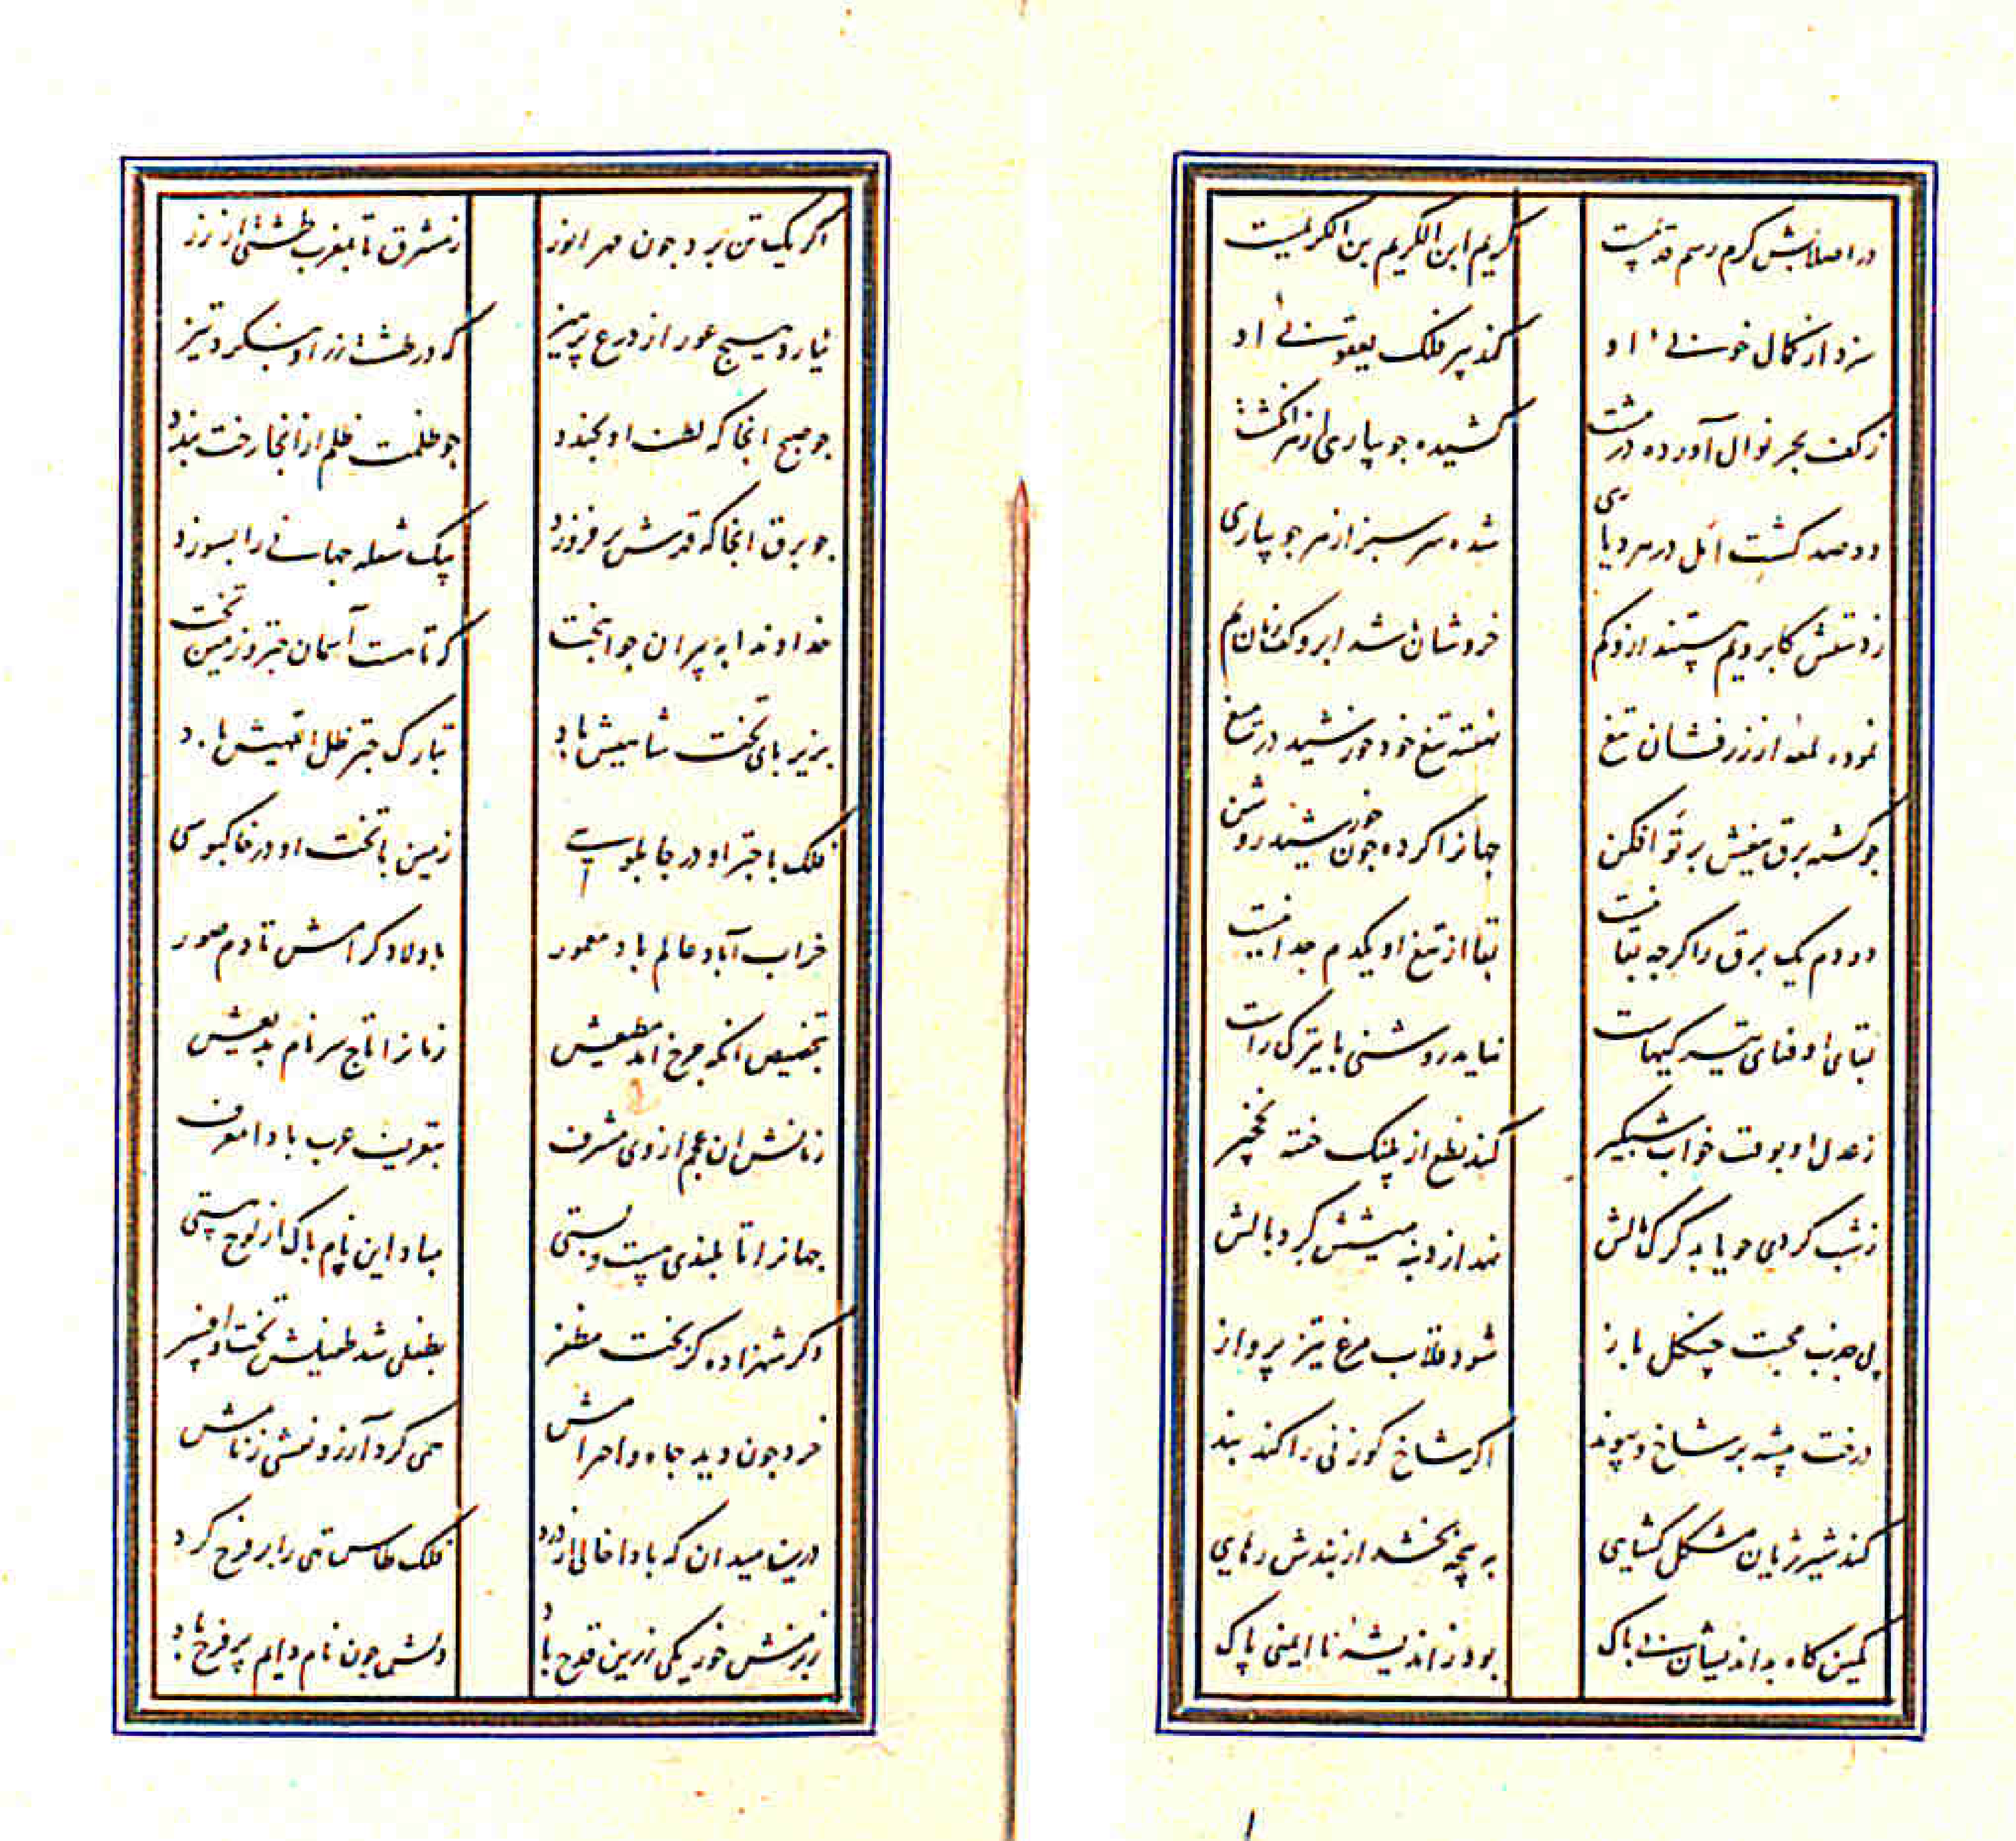 در اصلابش کرم رسم قدیمست کریم ابن الکریم بن الکریمست
سزد از کمال خوبئ او کند پیر فلک یعقوبئ او
ز کف بحر نوال آورده در مشت کشیده جویباری از هر انکشت
دو صد کشت امل در هر دیاری شده سرسبز از هر جویباری
ز دستش کابر و یم پستند ازو کم خروشان شد ابر و کف زنان یم
نموده لمعۀ از زرفشان تیغ نهفته تیغ خود خورشید در میغ
جو کشته برق تیغش پرتو افکن جهانرا کرده جون خورشید روشن
دو دم یک برق را کرجه بقا نیست بقا از تیغ او یکدم جدا نیست
بقای او فنای تیره کیهاست نیاید روشنی با تیرکی راست
ز عدل او بوقت خواب شبکیر کند نطع از پلنک خفته نخچیر
ز شب کردی جو یابد کرک مالش نهد از دنبه میشش کرد بالش
پی جذب محبت چنکل باز شود قلاب مرغ تیز پرواز
درخت بیشه بر شاخ و پیوند اکر شاخ کوزنی را کند بند
کند شیر ژیان مشکل کشایی به پنجه بخشد از بندش رهایی
کمین کاه بد اندیشان بی باک بود ز اندیشۀ نا ایمنی پاک
اکر یک تن برد جون مهر انور ز مشرق تا بمغرب طشتی از زر
نیارد هیسج عور از درع پرهیز که در طشت زر او بنکرد تیز
جو صبح انجا که لطف او بخندد جو ظلمت ظلم از انجا رخت بندد
جو برق انجا که قهرش برفروزد بیک شعله جهانی را بسوزد
خداوندا به پیران جوانبخت که تا هست آسمان جتر و زمین تخت
بزیر پای تخت شاهیش باد تبارک جتر ظل اللهیش باد
فلک با جتر او در جابلوسی زمین با تخت او در خاکبوسی
خراب آباد عالم باد معمور باولاد کرامش تا دم صور
بتخصیص انکه جرخ امد مطیعش زمانرا تاج سر نام بدیعش
زمانش دان عجم از وی مشرف بتعریف عرب بادا معرف
جهانرا تا بلندی هست و پستی مباد این نام پاک از لوح هستی
دکر شهزاده کز بخت مظفر بطفلی شد طفیلش تخت و افسر
خرد جون دید جاه و احترامش همی کرد آرزو نقشی ز نامش
درین میدان که بادا خالی از درد فلک طاس تهی را بر فرح کرد
ز بزمش خور یکی زرین قدح باد دلش جون نام دایم پر فرح باد